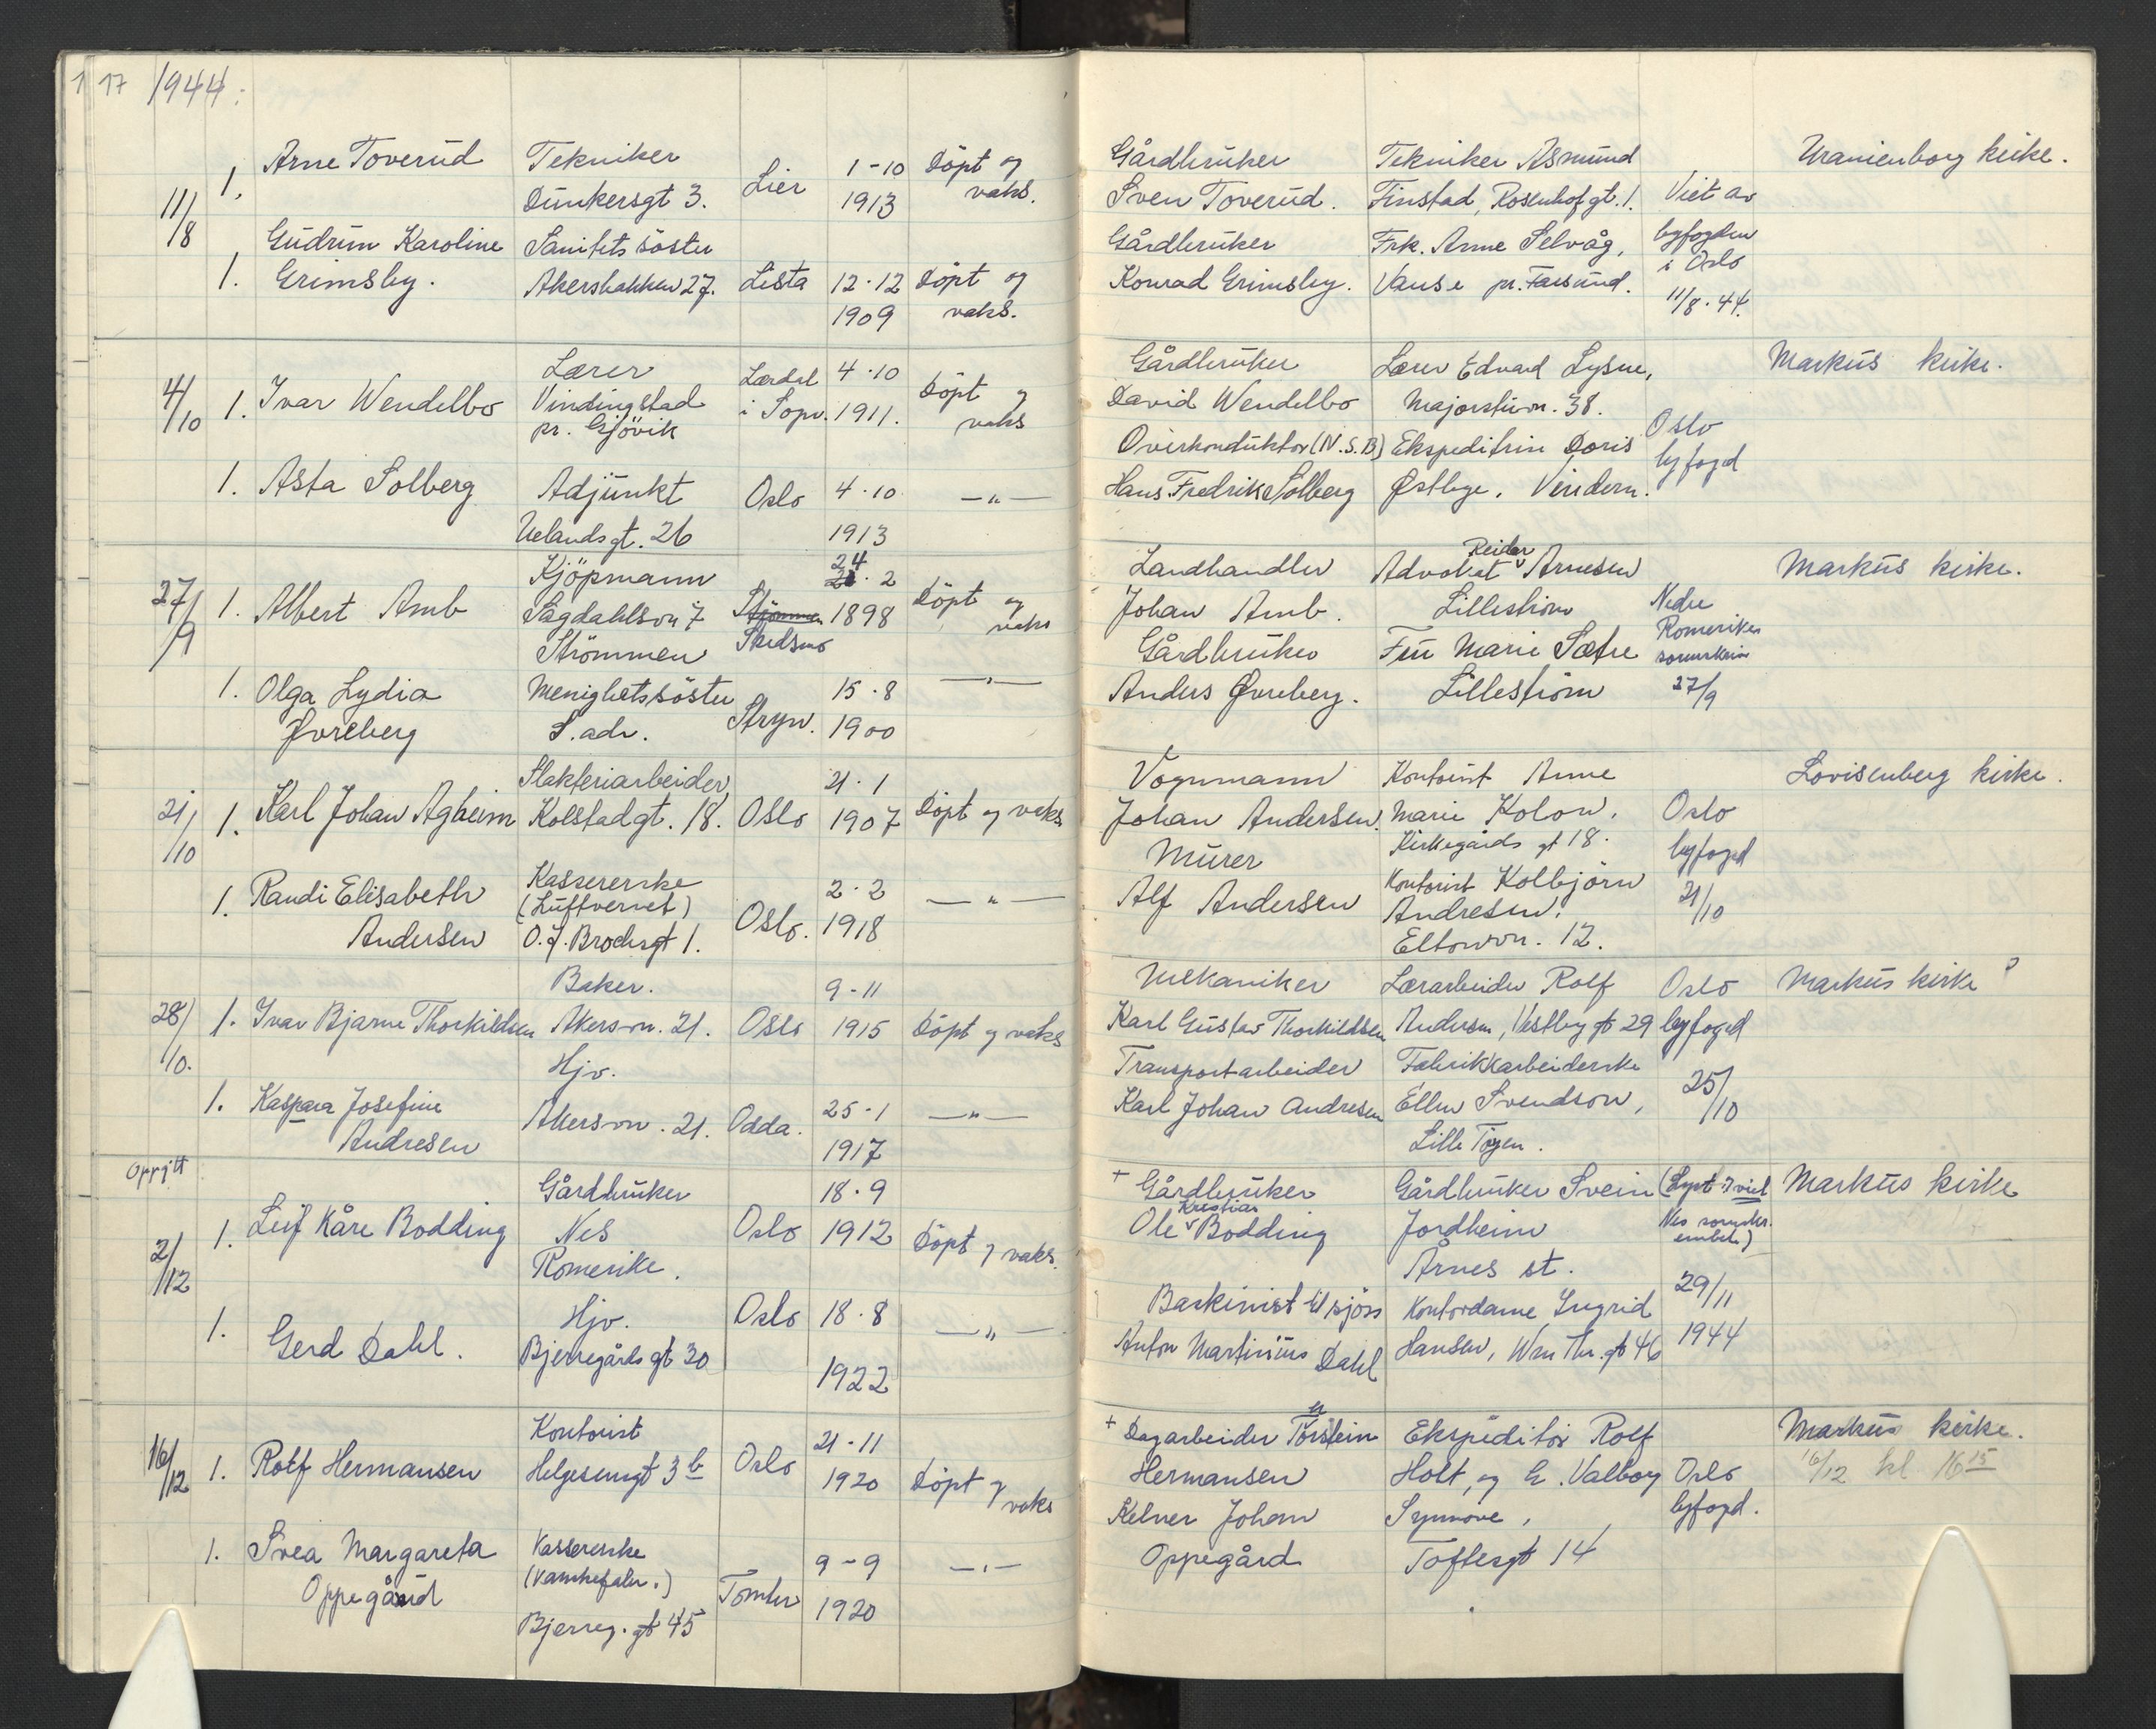 1 17 1944:
11/8
1. Arne Toverud
Tekniker
Dunkersgt 3.
Lier
1-10
1913
Döpt og
vaks.
Gårdbruker
Sven Toverud.
Tekniker Asmund
Finstad, Rosenhofgt. 1.
Viet av
byfogden
i Oslo
11/8.44.
Uranienborg kirke.
1. Gudrun Karoline
Grimsby.
Sanitetssöster
Akersbakken 27.
Lista
12.12
1909
Döpt og
vaks.
Gårdbruker
Konrad Grimsby.
Frk. Anne Selvåg,
Vanse pr. Farsund.
4/10
1. Ivar Wendelbo
Lærer
Vindingstad
pr. Gjövik
Lærdal
i Sogn.
4.10
1911.
Döpt og
vaks
Gårdbruker
David Wendelbo
Lærer Edvard Lysne,
Majorstuvn. 38.
Oslo
byfogd
Markus kirke.
1. Asta Solberg
Adjunkt
Uelandsgt. 26
Oslo
4.10
1913
—"—
Overkonduktör (N.S.B)
Hans Fredrik Solberg
Ekspeditrise Doris
Østbye. Vindern.
27/9
1. Albert Amb
Kjöpmann
Sagdahlsvn 7
Strömmen
Strömmen
Skedsmo
24
21.2
1898
Döpt og
vaks
Landhandler
Johan Amb.
Reidar
Advokat Arnesen
Lilleström
Nedre
Romerikes
sorenskriv
27/9
Markus kirke.
1. Olga Lydia
Øvreberg
Menighetssöster
S. adr.
Stryn.
15.8
1900
—"—
Gårdbruker
Anders Øvreberg.
Fru Marie Sætre
Lilleström
21/10
1. Karl Johan Agheim
Slakteriarbeider,
Kolstadgt. 18.
Oslo
21.1
1907
Döpt og vaks
Vognmann
Johan Andersen.
Kontorist Anne
Marie Kolow.
Kirkegårds gt 18.
Oslo
byfogd
21/10
Lovisenberg kirke.
1. Randi Elisabeth
Andersen
Kassererske
(Luftvernet)
O.J. Brochsgt 1.
Oslo.
2.2
1918
—"—
Murer
Alf Andersen
Kontorist Kolbjörn
Andresen.
Eltonvn. 12.
28/10.
1. Ivar Bjarne Thorkildsen
Baker.
Akersvn. 21.
Oslo
9-11
1915
Döpt og vaks
Mekaniker
Karl Gustav Thorkildsen
Lærarbeider Rolf
Andersen, Vestbygt 29
Oslo
byfogd
25/10
Markus kirke ?
1. Kaspara Josefine
Andresen
Hjv.
Akersvn. 21.
Odda.
25-1
1917
—"—
Transportarbeider
Karl Johan Andresen
Fabrikkarbeiderske
Ellen Svendson,
Lille Töyen.
2/12
1. Leif Kåre Bodding
Gårdbruker
Nes
Romerike.
Oslo
18.9
1912
Döpt og vaks.
+ Gårdbruker
Kristian
Ole Bodding
Gårdbruker Svein
Jordheim
Årnes st.
(Lyst & viet
Nes sorenskr.
embete)
29/11
1944
Markus kirke
1. Gerd Dahl.
Hjv.
Bjerregårds gt 30
Oslo
18.8
1922
—"—
Maskinist til sjöss
Anton Martinius Dahl
Kontordame Ingrid
Hansen, Wm Thr. gt 46
16/12
1. Rolf Hermansen
Kontorist
Helgesensgt 3b
Oslo
21-11
1920
Döpt og
vaks
+ Dagarbeider Torstein
Hermansen
Ekspeditör Rolf
Holt, og E. Valborg
Synnöve,
Toftesgt 14
Oslo
byfogd.
Markus kirke.
16/12 kl 16 15
1. Svea Margareta
Oppegård
Kassererske
Bjerreg. gt 45
Tomter
9-9
1920
—"—
Kelner Johan
Oppegård